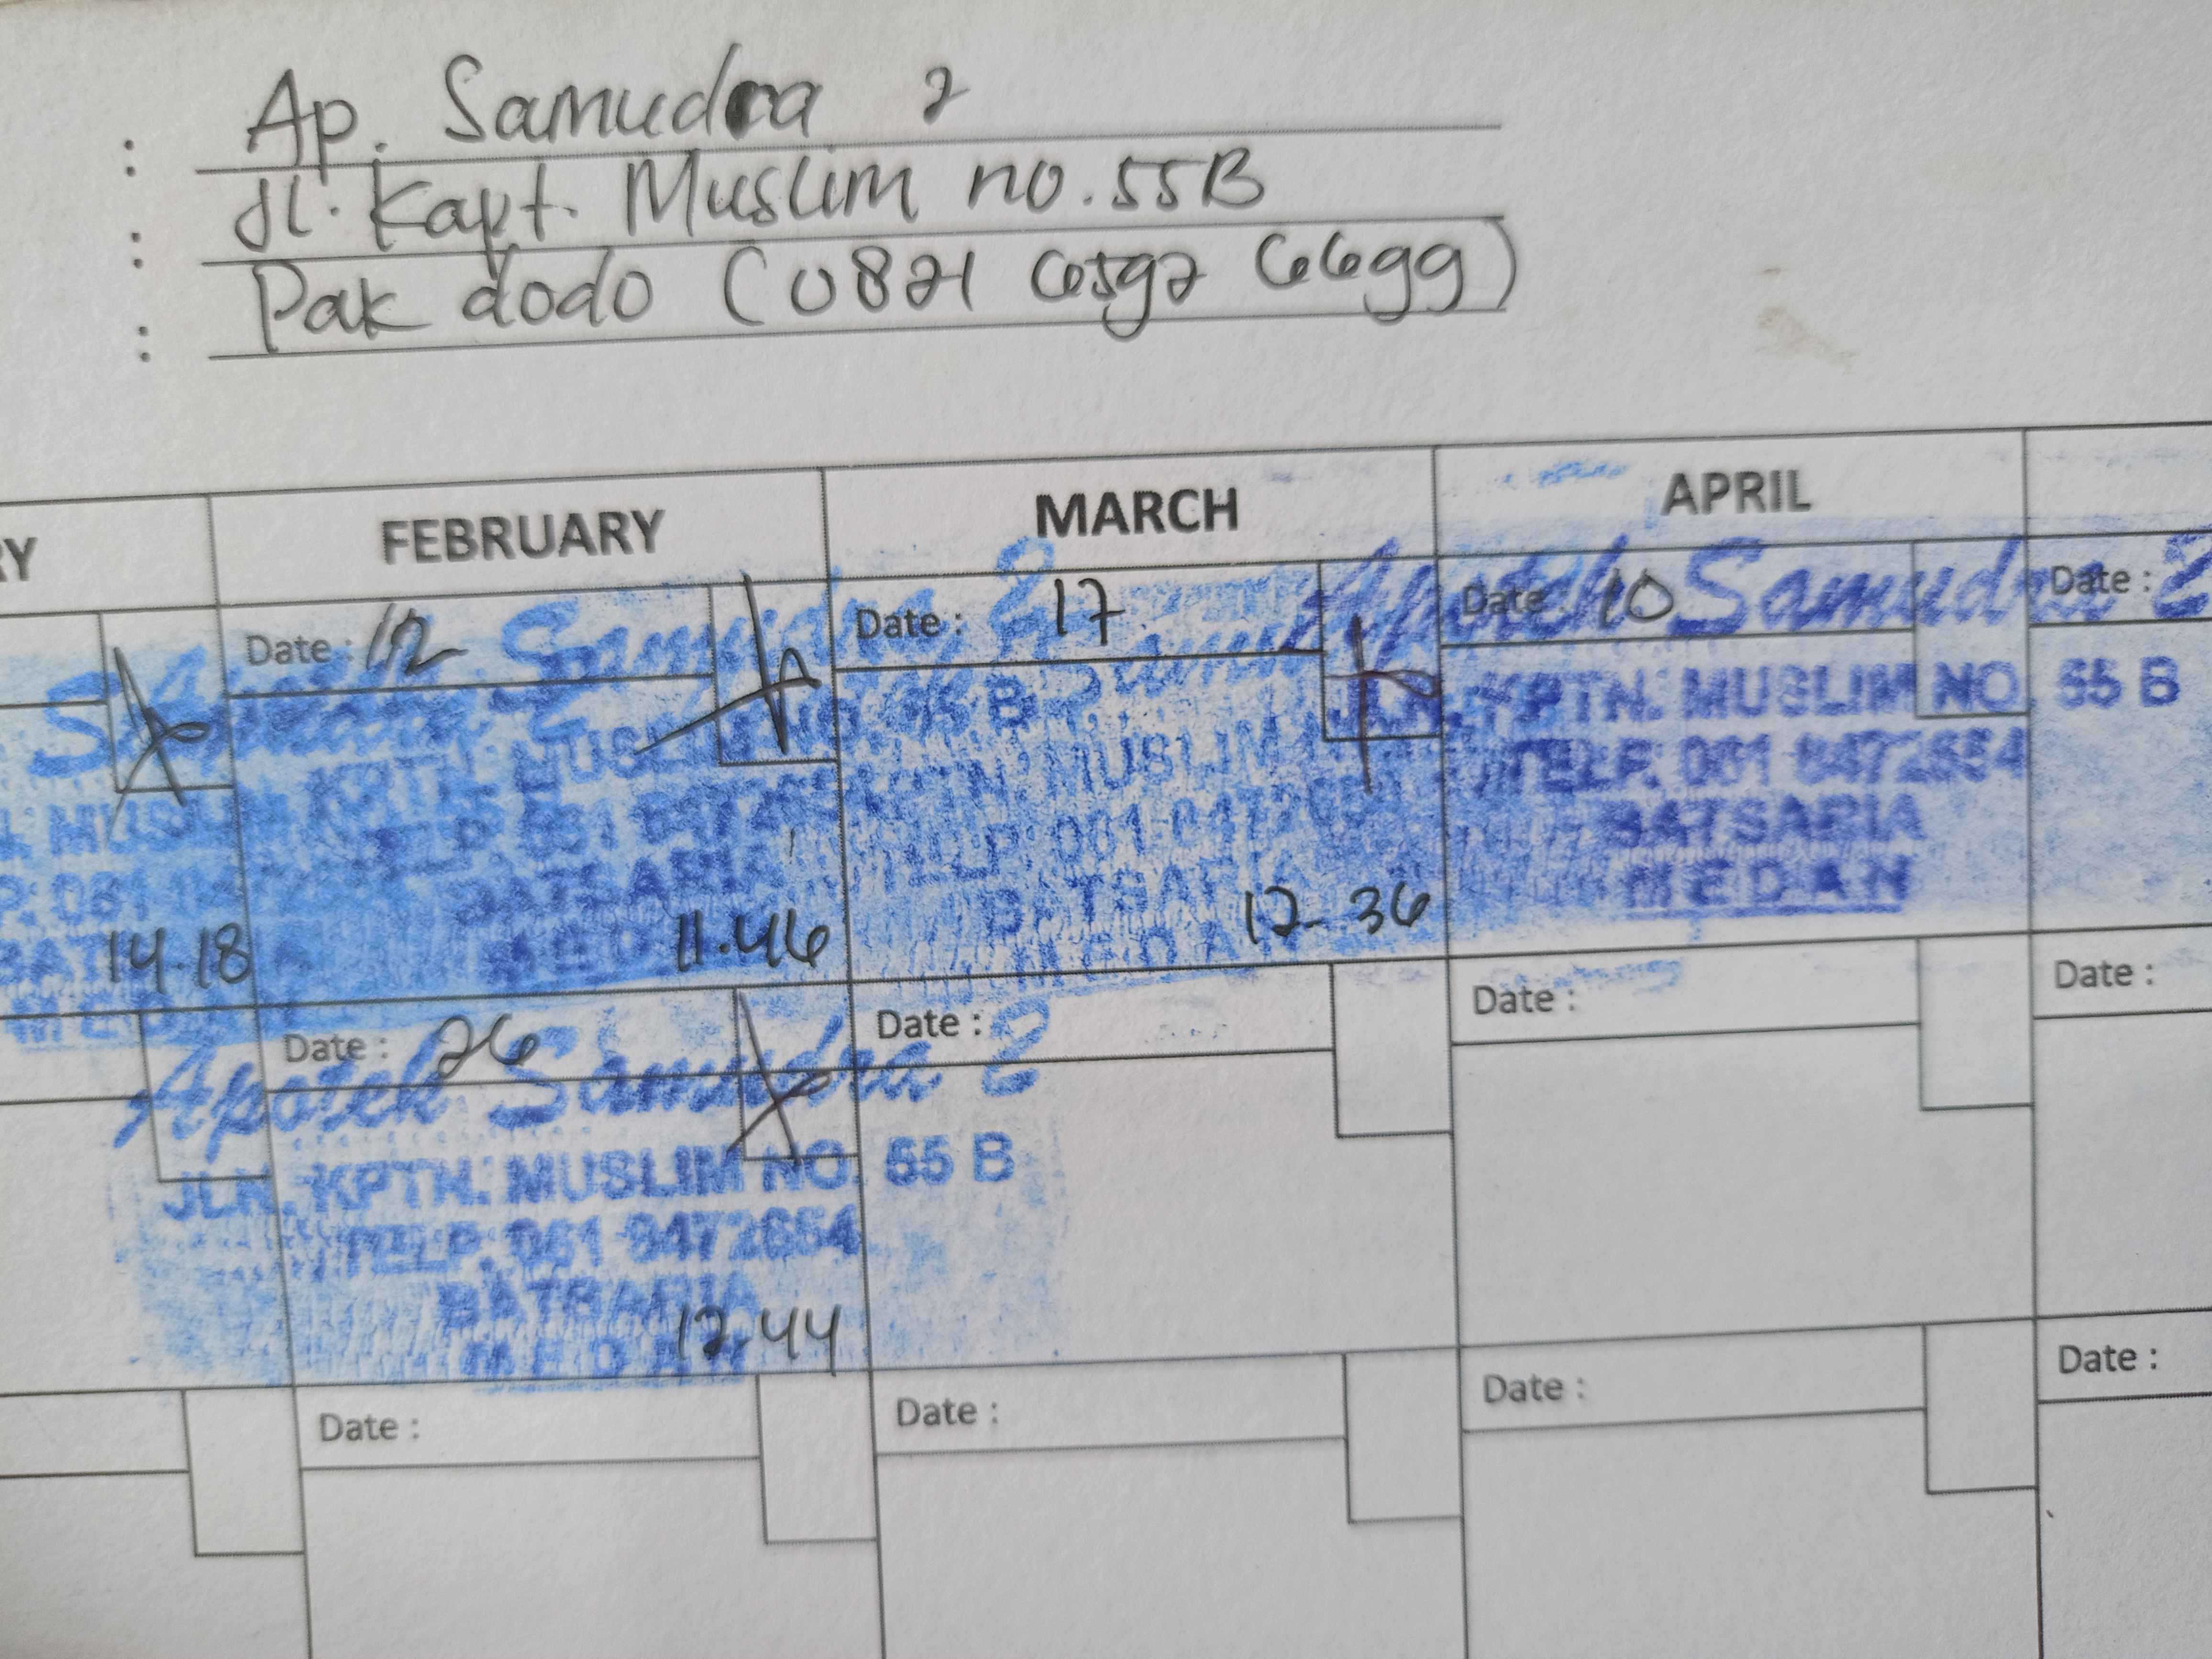 : Ap. Samudra 2
: Jl. Kapt. Muslim no. 55B
: Pak dodo (0821 6592 6699)
RY FEBRUARY MARCH APRIL
Date : 12 Date : 17 Date : 10 Date :
Samudra 2 Apotek Samudra 2
KPTN. MUSLIM JLN. KPTN. MUSLIM NO. 55 B
TELP. 061 8472654
BATSARIA
MEDAN
14.18 11.46 12-36
Date : 26 Date : Date : Date :
Apotek Samudra 2
JLN. KPTN. MUSLIM NO. 55 B
TELP. 061 8472654
BATSARIA
MEDAN
12.44
Date : Date : Date : Date :